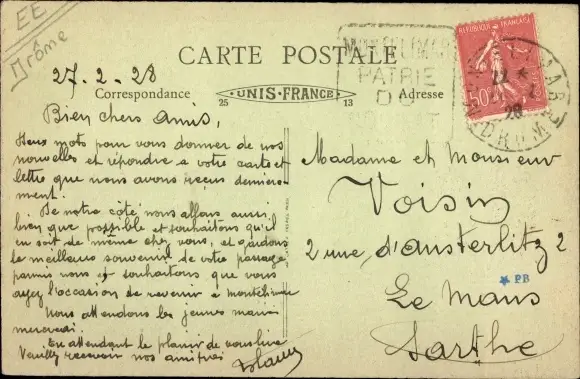 EE
Drôme
CARTE POSTALE
27-2-28
Correspondance
25
UNIS-FRANCE
13
Adresse
MONTELIMAR
PATRIE
DU
REPUBLIQUE FRANCAISE
50
28
DROME
Bien chers amis,
Deux mots pour vous donner de nos
nouvelles et répondre a votre carte et
lettre que nous avons reçus dernière-
ment.
De notre côté nous allons aussi
bien que possible et souhaitons qu'il
en soit de même chez vous, et gardons
le meilleur souvenir de votre passage
parmis nous et souhaitons que vous
ayez l'occasion de revenir a montélimar
Nous attendons les jeunes
mercredi.
En attendant le plaisir de vous lire
Veuillez recevoir nos amitiés
Madame et Monsieur
Voisin
2 rue d'austerlitz 2
PB
Le Mans
Sarthe